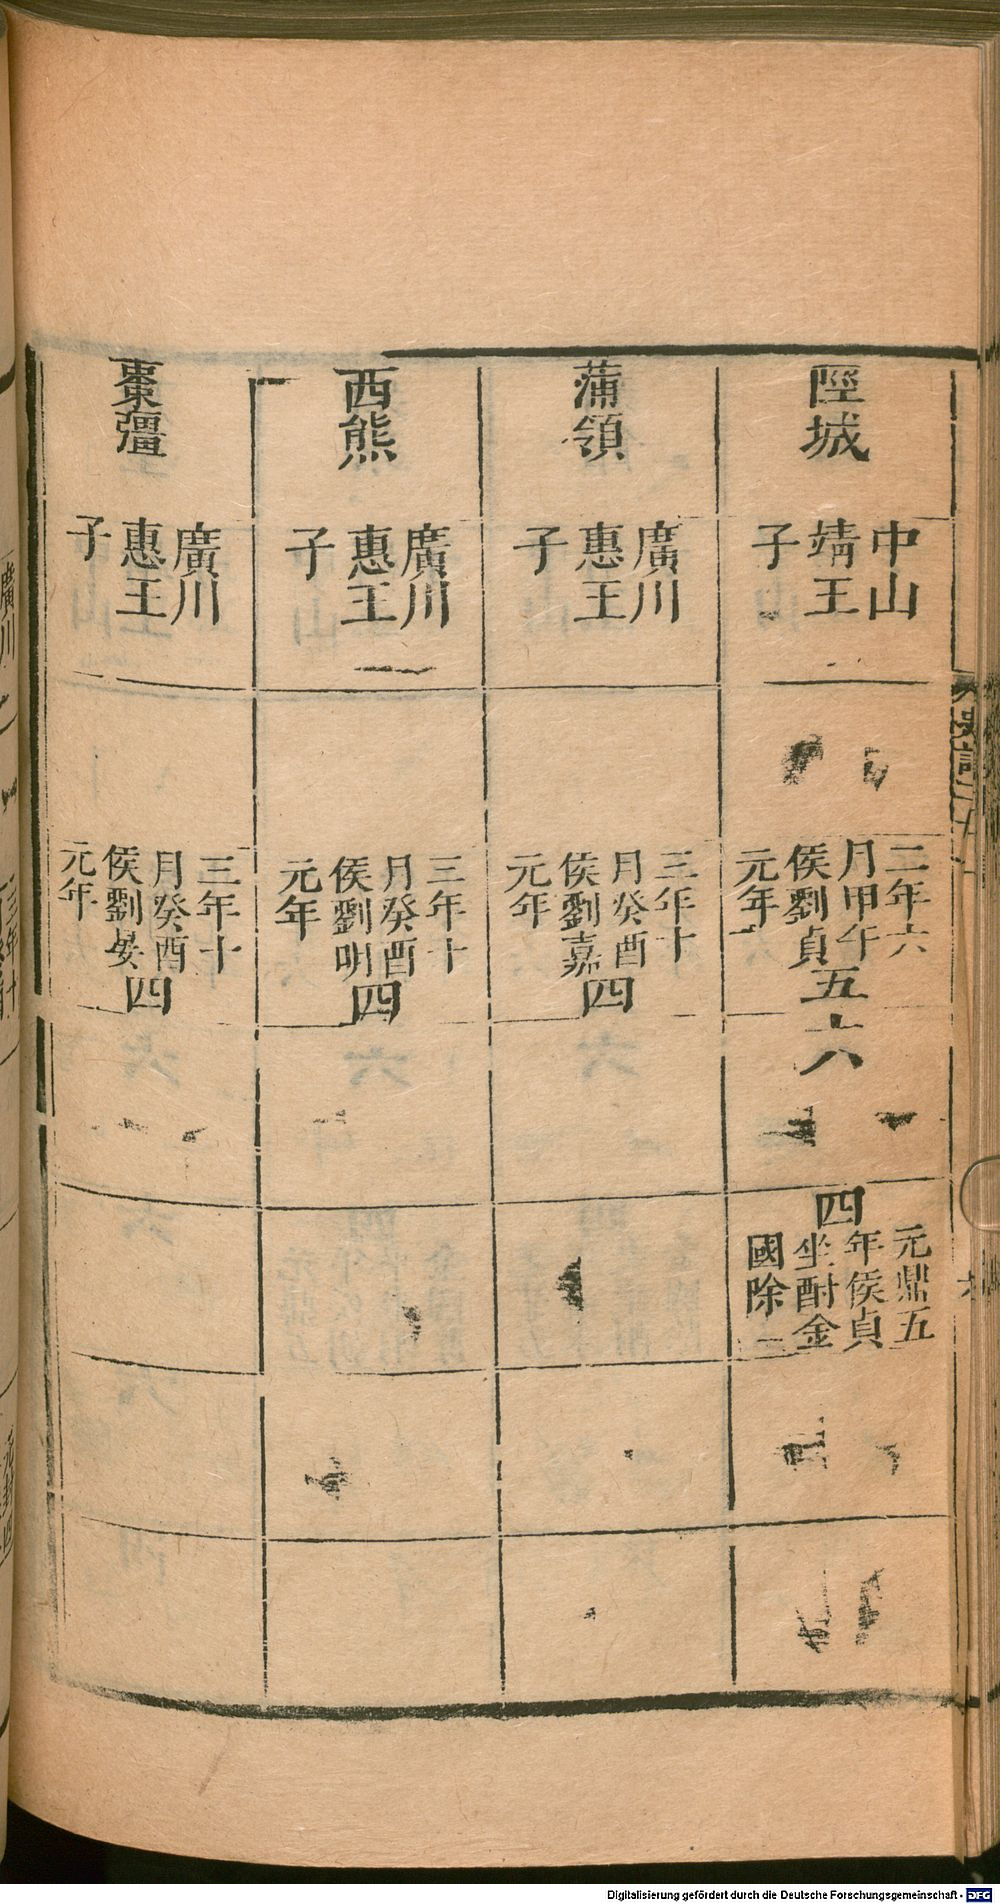 陘城
中山
靖王
子
二年六
月甲午
侯劉貞
元年
五
六
四
元鼎五
年侯貞
坐酎金
國除
蒲領
廣川
惠王
子
三年十
月癸酉
侯劉嘉
元年
四
西熊
廣川
惠王
子
三年十
月癸酉
侯劉明
元年
四
棗彊
廣川
惠王
子
三年十
月癸酉
侯劉晏
元年
四
Digitalisierung gefördert durch die Deutsche Forschungsgemeinschaft - DFG